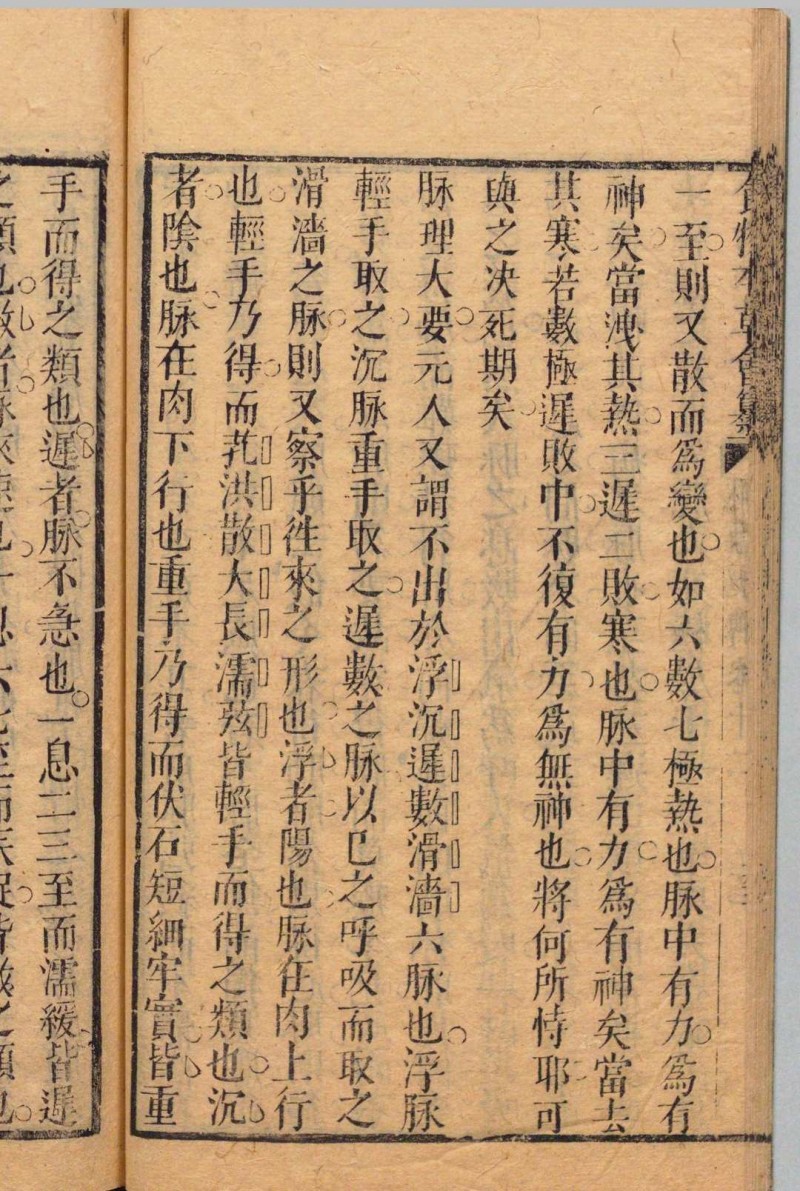 食物本草會纂
一至則又散而爲變也如六數七極熱也脉中有力爲有
神矣當洩其熱三遲二敗寒也脉中有力爲有神矣當去
其寒若數極遲敗中不復有力爲無神也將何所恃耶可
與之决死期矣
脉理大要元人又謂不出於浮沉遲數滑濇六脉也浮脉
輕手取之沉脉重手取之遲數之脉以巳之呼吸而取之
滑濇之脉則又察乎徃來之形也浮者陽也脉在肉上行
也輕手乃得而芤洪散大長濡弦皆輕手而得之類也沉
者陰也脉在肉下行也重手乃得而伏石短細牢實皆重
手而得之類也遲者脉不急也一息二三至而濡緩皆遲
之類也數者脉來速也一息六七至而疾促皆數之類也